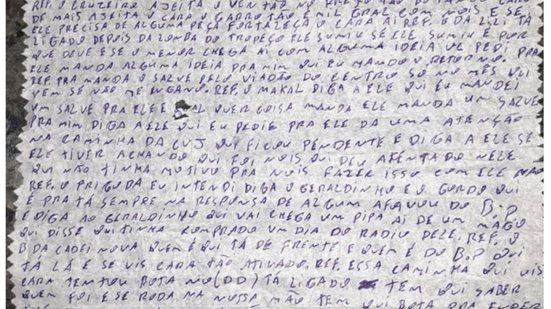 REF. O CRUZEIRO AJEITA O VENTÃO NO
DE MAIS AJEITA O CARA O GARROTÃO É MIL GRAU COM NOIS E SE
ELE PRECISA DE ALGUMA PELA FORTALEÇA O CARA AI REF. O DA 2.L TA
LIGADO DEPOIS DA ZONDA DO TROPEÇO ELE SUMIU SE ELE SUMIU É POR
QUE DEVE ESE O MENOR CHEGA AI COM ALGUMA IDEIA VC PEDI PRA
ELE MANDA ALGUMA IDEIA PRA MIM QUI EU MANDO O RETORNO.
REF PRA MANDA O SALVE PELO VIADÃO DO CENTRO SO NO MÊS QUI
VEM SE NÃO ME ENGANO. REF. O MAKAL DIGA A ELE QUI EU MANDEI
UM SALVE PRA ELE E QUER COISA MANDA ELE MANDA UM SALVE
PRA MIM DIGA A ELE QUI EU PEDIR PRA ELE DA UMA ATENÇÃO
NA CAMINHA DA QUI FICOU PENDENTE E DIGA A ELE SE
ELE TIVER ACHANDO QUI FOI NOIS QUI DEU NELE
QUI NÃO TINHA MOTIVO PRA NOIS FAZER ISSO COM ELE NÃO
REF. O PRIGUDA EU INTENDI DIGA O GERALDINHO E O GORDO QUI
É PRA TÁ SEMPRE NA RESPONSA DE ALGUM AFAVOU DO B.P
E DIGA AO GERALDINHO QUI VAI CHEGA UM PIPA AI DE UM MAGO
QUI DISSE QUI TINHA COMPRADO UM DIA DO RADIU DELE. REF. O
B DA CADEI NOVA QUEM É QUI TÁ DE FRENTE E QUEM É DO B.P QUI
TÁ LÁ E SE VIS CARA TÃO ATIVADO. REF. ESSA CAMINHA QUI VIS
CARA TENTOU BOTA NO (DD) TÁ LIGADO TEM QUI SABER
QUEM FOI E SE RODA NA NOSSA MÃO TEM QUI BOTA PRA